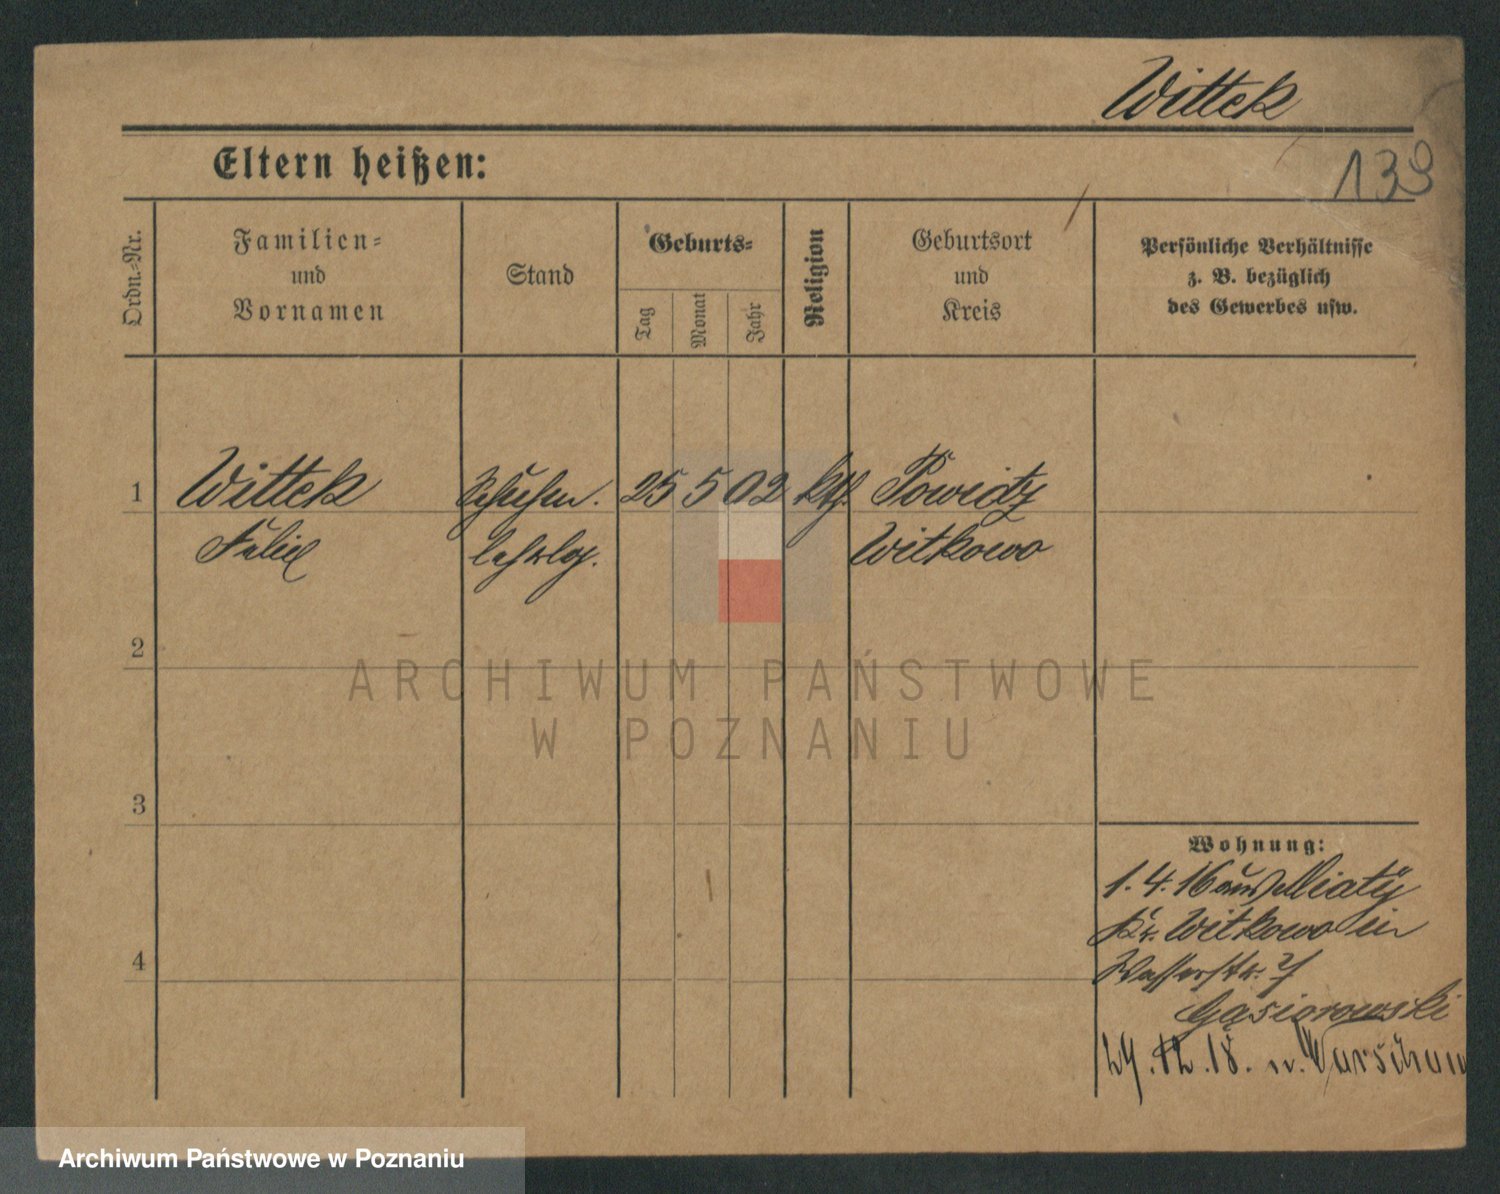 Wittek
Eltern heißen:
139
Ordn.-Nr.
Familien-
und
Vornamen
Stand
Geburts-
Tag
Monat
Jahr
Religion
Geburtsort
und
Kreis
Persönliche Verhältnisse
z. B. bezüglich
des Gewerbes usw.
1
Wittek
Felix
Schuhm.
lehrlg.
25 5 02
kth.
Powidz
Witkowo
2
3
4
Wohnung:
1. 4. 16 aus Miaty
Kr. Witkowo in
Wasserstr.
Gąsiorowski
29. 12. 18. n. Warschau
ARCHIWUM PAŃSTWOWE
W POZNANIU
Archiwum Państwowe w Poznaniu